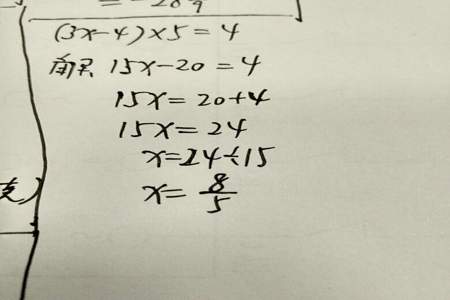 (3x-4)×5=4
解 15x-20=4
15x=20+4
15x=24
x=24÷15
x=8/5